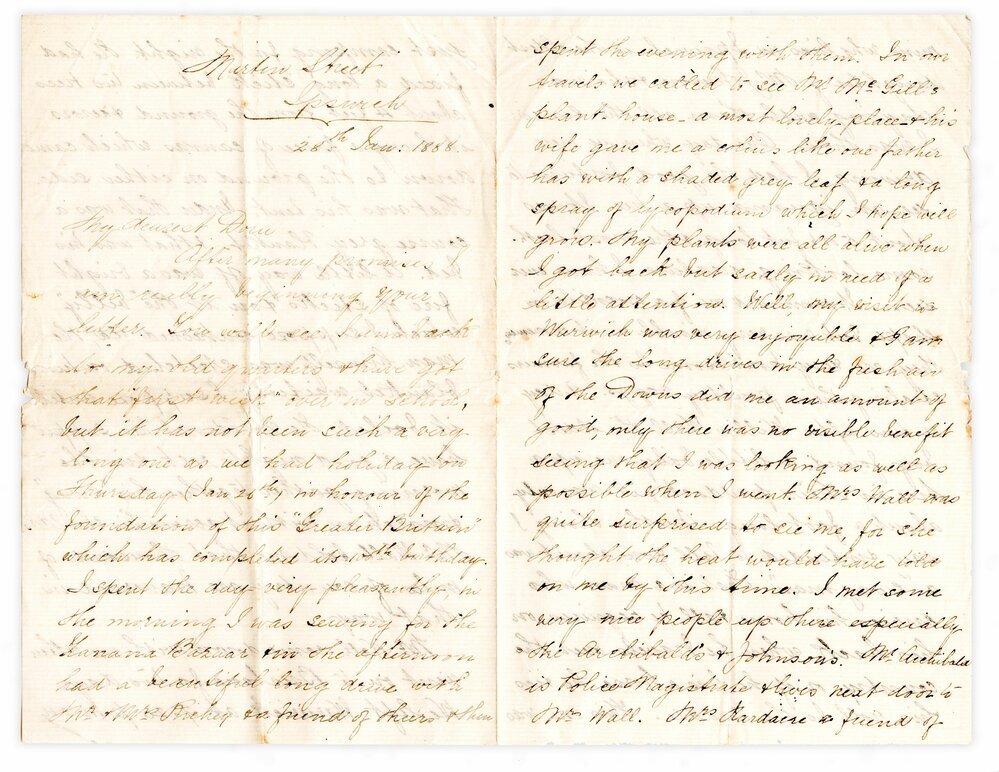 Martin Street
Ipswich
28th Jan: 1888.
My dearest
After many promises I
am really beginning your
letter. You will see I am back
to my old quarters & have got
that first week over in school,
but it has not been such a very
long one as we had holiday on
Thursday (Jan 26th) in honour of the
foundation of this "Greater Britain"
which has completed its birthday.
I spent the day very pleasantly in
the morning I was sewing for the
Banana Bazaar & in the afternoon
had a beautiful long drive with
Mr & Mrs & a friend of theirs & then
spent the evening with them. In our
travels we called to see Mr McGill's
plant-house - a most lovely place & his
wife gave me a coleus like one father
has with a shaded grey leaf & a long
spray of lycopodium which I hope will
grow. My plants were all alive when
I got back but sadly in need of a
little attention. Well, my visit to
Warwick was very enjoyable & I am
sure the long drives in the fresh air
of the Downs did me an amount of
good, only there was no visible benefit
seeing that I was looking as well as
possible when I went. Mrs Wall was
quite surprised to see me, for she
thought the heat would have told
on me by this time. I met some
very nice people up there especially
the Archibald's & Johnson's. Mr Archibald
is Police Magistrate & lives next door to
Mr Wall. Mrs a friend of